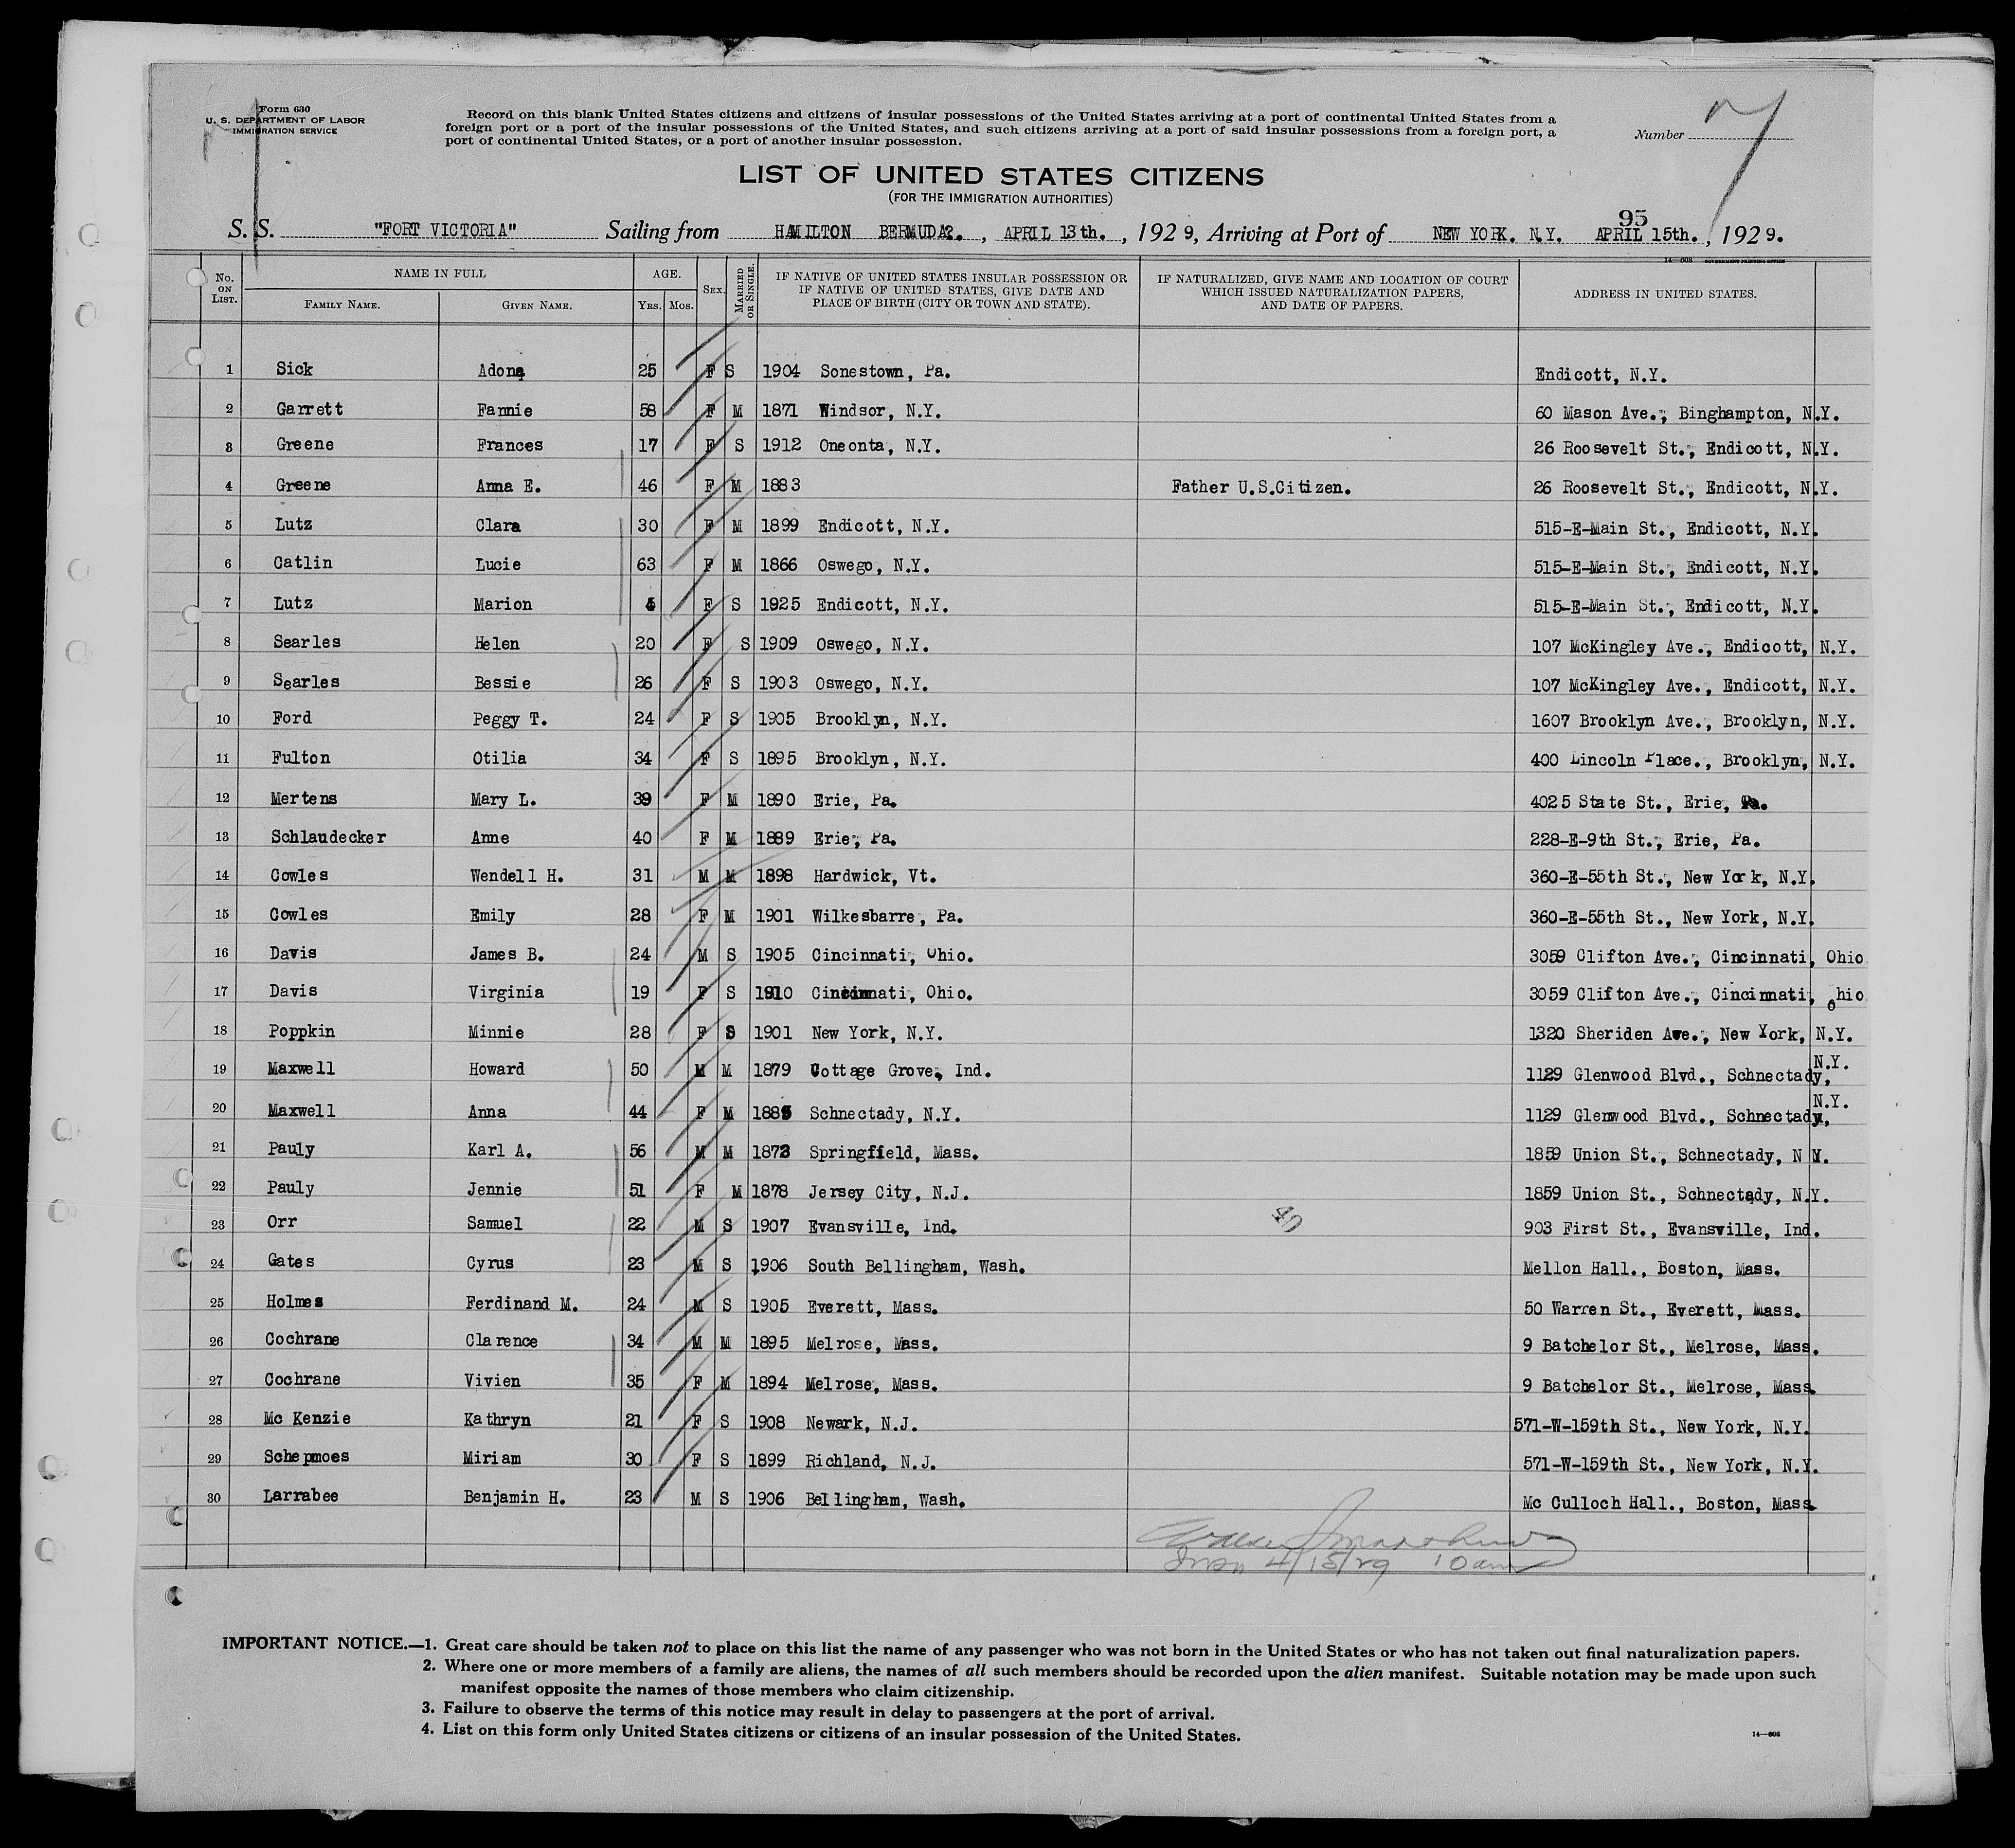 Form 630
U. S. DEPARTMENT OF LABOR
IMMIGRATION SERVICE
Record on this blank United States citizens and citizens of insular possessions of the United States arriving at a port of continental United States from a
foreign port or a port of the insular possessions of the United States, and such citizens arriving at a port of said insular possessions from a foreign port, a
port of continental United States, or a port of another insular possession.
Number 7
LIST OF UNITED STATES CITIZENS
(FOR THE IMMIGRATION AUTHORITIES)
95
S. S. "FORT VICTORIA" Sailing from HAMILTON BERMUDA?. , APRIL 13th. , 1929, Arriving at Port of NEW YORK. N.Y. APRIL 15th. , 1929.
14—508 GOVERNMENT PRINTING OFFICE
No. ON LIST. NAME IN FULL FAMILY NAME. GIVEN NAME. AGE. YRS. MOS. SEX. MARRIED OR SINGLE. IF NATIVE OF UNITED STATES INSULAR POSSESSION OR IF NATIVE OF UNITED STATES, GIVE DATE AND PLACE OF BIRTH (CITY OR TOWN AND STATE). IF NATURALIZED, GIVE NAME AND LOCATION OF COURT WHICH ISSUED NATURALIZATION PAPERS, AND DATE OF PAPERS. ADDRESS IN UNITED STATES.
1 Sick Adona 25 F S 1904 Sonestown, Pa. Endicott, N.Y.
2 Garrett Fannie 58 F M 1871 Windsor, N.Y. 60 Mason Ave., Binghampton, N.Y.
3 Greene Frances 17 F S 1912 Oneonta, N.Y. 26 Roosevelt St., Endicott, N.Y.
4 Greene Anna E. 46 F M 1883 Father U.S.Citizen. 26 Roosevelt St., Endicott, N.Y.
5 Lutz Clara 30 F M 1899 Endicott, N.Y. 515-E-Main St., Endicott, N.Y.
6 Catlin Lucie 63 F M 1866 Oswego, N.Y. 515-E-Main St., Endicott, N.Y.
7 Lutz Marion F S 1925 Endicott, N.Y. 515-E-Main St., Endicott, N.Y.
8 Searles Helen 20 F S 1909 Oswego, N.Y. 107 McKingley Ave., Endicott, N.Y.
9 Searles Bessie 26 F S 1903 Oswego, N.Y. 107 McKingley Ave., Endicott, N.Y.
10 Ford Peggy T. 24 F S 1905 Brooklyn, N.Y. 1607 Brooklyn Ave., Brooklyn, N.Y.
11 Fulton Otilia 34 F S 1895 Brooklyn, N.Y. 400 Lincoln Place., Brooklyn, N.Y.
12 Mertens Mary L. 39 F M 1890 Erie, Pa. 4025 State St., Erie, Pa.
13 Schlaudecker Anne 40 F M 1889 Erie, Pa. 228-E-9th St., Erie, Pa.
14 Cowles Wendell H. 31 M M 1898 Hardwick, Vt. 360-E-55th St., New York, N.Y.
15 Cowles Emily 28 F M 1901 Wilkesbarre, Pa. 360-E-55th St., New York, N.Y.
16 Davis James B. 24 M S 1905 Cincinnati, Ohio. 3059 Clifton Ave., Cincinnati, Ohio
17 Davis Virginia 19 F S 1910 Cincinnati, Ohio. 3059 Clifton Ave., Cincinnati, Ohio
18 Poppkin Minnie 28 F S 1901 New York, N.Y. 1320 Sheriden Ave., New York, N.Y.
19 Maxwell Howard 50 M M 1879 Cottage Grove, Ind. 1129 Glenwood Blvd., Schnectady, N.Y.
20 Maxwell Anna 44 F M 1885 Schnectady, N.Y. 1129 Glenwood Blvd., Schnectady, N.Y.
21 Pauly Karl A. 56 M M 1873 Springfield, Mass. 1859 Union St., Schnectady, N Y.
22 Pauly Jennie 51 F M 1878 Jersey City, N.J. 1859 Union St., Schnectady, N.Y.
23 Orr Samuel 22 M S 1907 Evansville, Ind. 40 903 First St., Evansville, Ind.
24 Gates Cyrus 23 M S 1906 South Bellingham, Wash. Mellon Hall., Boston, Mass.
25 Holmes Ferdinand M. 24 M S 1905 Everett, Mass. 50 Warren St., Everett, Mass.
26 Cochrane Clarence 34 M M 1895 Melrose, Mass. 9 Batchelor St., Melrose, Mass.
27 Cochrane Vivien 35 F M 1894 Melrose, Mass. 9 Batchelor St., Melrose, Mass.
28 Mc Kenzie Kathryn 21 F S 1908 Newark, N.J. 571-W-159th St., New York, N.Y.
29 Schepmoes Miriam 30 F S 1899 Richland, N.J. 571-W-159th St., New York, N.Y.
30 Larrabee Benjamin H. 23 M S 1906 Bellingham, Wash. Mc Culloch Hall., Boston, Mass.
4/15/29 10am
IMPORTANT NOTICE.—1. Great care should be taken not to place on this list the name of any passenger who was not born in the United States or who has not taken out final naturalization papers.
2. Where one or more members of a family are aliens, the names of all such members should be recorded upon the alien manifest. Suitable notation may be made upon such
manifest opposite the names of those members who claim citizenship.
3. Failure to observe the terms of this notice may result in delay to passengers at the port of arrival.
4. List on this form only United States citizens or citizens of an insular possession of the United States.
14—508